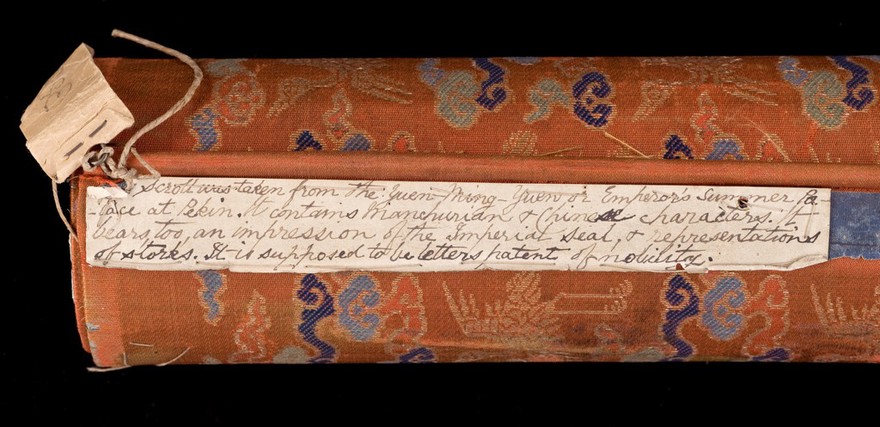 scroll was taken from the Yuen-Ming-Yuen or Emperor's Summer Pa-
-lace at Pekin. It contains Manchurian & Chinese characters. It
bears, too, an impression of the Imperial seal, & representations
of storks. It is supposed to be letters patent of nobility.